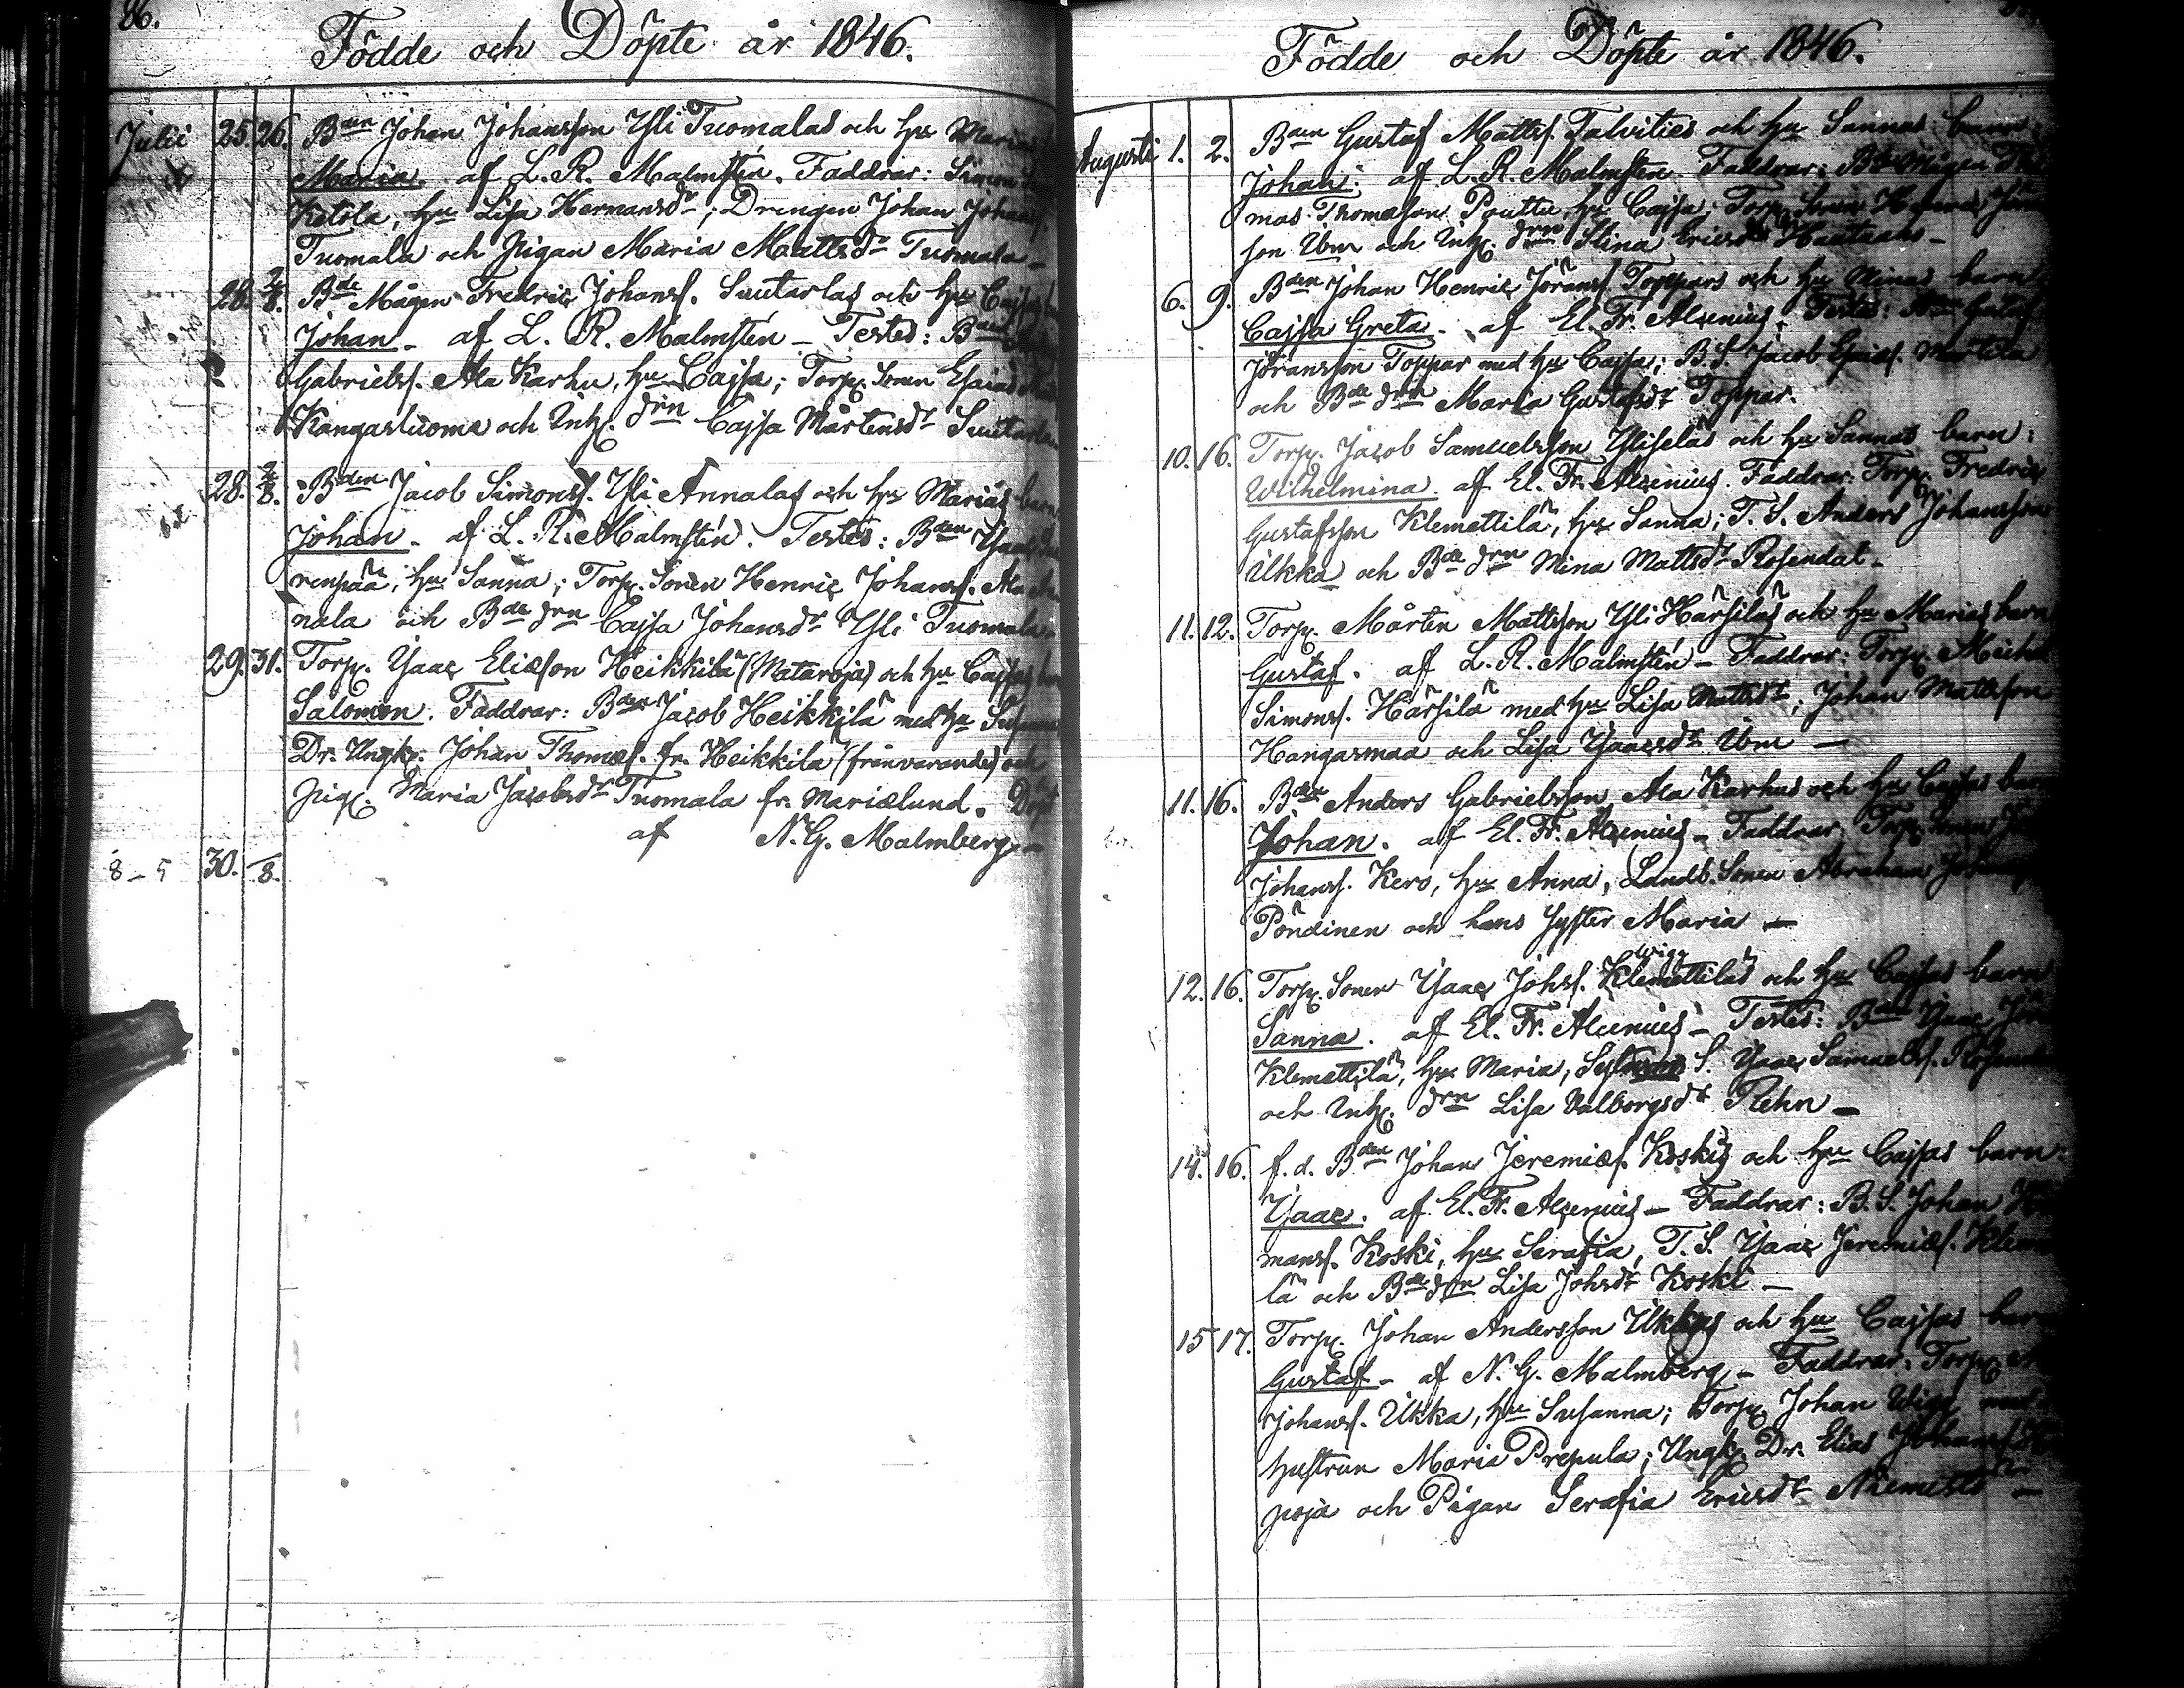 86.
Födde och Döpte år 1846.
Julii 25. 26. Bden Johan Johansson Yli Tuomalas och hu Maria
Maria. af L. R. Malmstén. Faddrar: Simon
Ketola, hu Lisa Hermansdr; Drengen Johan Johans.
Tuomala och Pigan Maria Mattsdr Tuomala –
28. 2/8. Bde Mågen Fredric Johanss. Suutarlas och hu Cajsas
Johan – af L. R. Malmstén – Testes: Bden
Gabrielss. Ala Karhu, hu Cajsa; Torp. Sonen Esaias
Kangasluoma och Inh. drn Cajsa Mårtensdr Suutarla
28. 2/8. Bden Jacob Simonss. Yli Annalas och hu Marias barn
Johan. af L. R. Malmstén. Testes: Bden Isaac
renpää, hu Sanna; Torp. Sonen Henric Johanss. Ala An
nala och Bde drn Cajsa Johansdr Yli Tuomala.
29. 31. Torp. Isaac Eliasson Heikkilä (Mataroja) och hu Cajsas
Salomon. Faddrar: Bden Jacob Heikkilä med hu Susanna
Dr. Ungk. Johan Thomas. fr. Heikkilä (frånvarande) och
Pig. Maria Jacobsdr Tuomala fr. Marielund. Döpt
af N. G. Malmberg –
8 – 5 30. /8.
Födde och Döpte år 1846.
Augusti 1. 2. Bden Gustaf Mattss. Talvities och hu Sannas barn:
Johan. af L. R. Malmstén. Faddrar: Bde Mågen Tho
mas Thomasson Pouttu, hu Cajsa; Torp. Sonen
son Ibm och Inh. drn Stina Ericsdr –
6. 9. Bden Johan Henric Jöranss. Toppars och hu Minas barn
Cajsa Greta. af El. Fr. Alcenius. Testes: Bden Gustaf
Jöransson Toppar med hu Cajsa; B. S. Jacob Esaiass. Martila
och Bde drn Maria Gustafsdr Toppar.
10. 16. Torp. Jacob Samuelsson Yliseläs och hu Sannas barn:
Wilhelmina. af El. Fr. Alcenius. Faddrar: Torp. Fredric
Gustafsson Klemettilä, hu Sanna; T. S. Anders Johansson
Ukka och Bde drn Mina Mattsdr Rosendal –
11. 12. Torp. Mårten Mattsson Yli Härsiläs och hu Marias barn
Gustaf. af L. R. Malmstén – Faddrar: Torp.
Simonss. Härsilä med hu Lisa Mattsdr; Johan Mattsson
Hangasmaa och Lisa Isaacsdr Ibm –
11. 16. Bden Anders Gabrielsson Ala Karhus och hu Cajsas barn
Johan. af El. Fr. Alcenius – Faddrar: Torp. Sonen
Johanss. Kero, hu Anna, Landb. Sonen Abraham
Pöndinen och hans Syster Maria –
Wigg
12. 16. Torp. Sonen Isaac Johss. Klemettiläs och hu Cajsas barn
Sanna. af El. Fr. Alcenius – Testes: Bden Isaac
Klemettilä, hu Maria, S. Isaac Samuelss. Rosendal
och Inh. drn Lisa Valborgsdr Rehn –
14. 16. f. d. Bden Johan Jeremiass. Koskis och hu Cajsas barn:
Isaac. af El. Fr. Alcenius – Faddrar: B. S. Johan Her
manss. Koski, hu Serafia, T. S. Isaac Jeremiass. Klemetti
lä och Bde drn Lisa Johsdr Koski –
15 17. Torp. Johan Andersson Ukkas och hu Cajsas barn
Gustaf – af N. G. Malmberg – Faddrar: Torp.
Johanss. Ukka, hu Susanna; Torp. Johan Wigg med
hustrun Maria Prepula; Ungk. Dr. Elias Johanss.
poja och Pigan Serafia Ericsdr Niemistö –